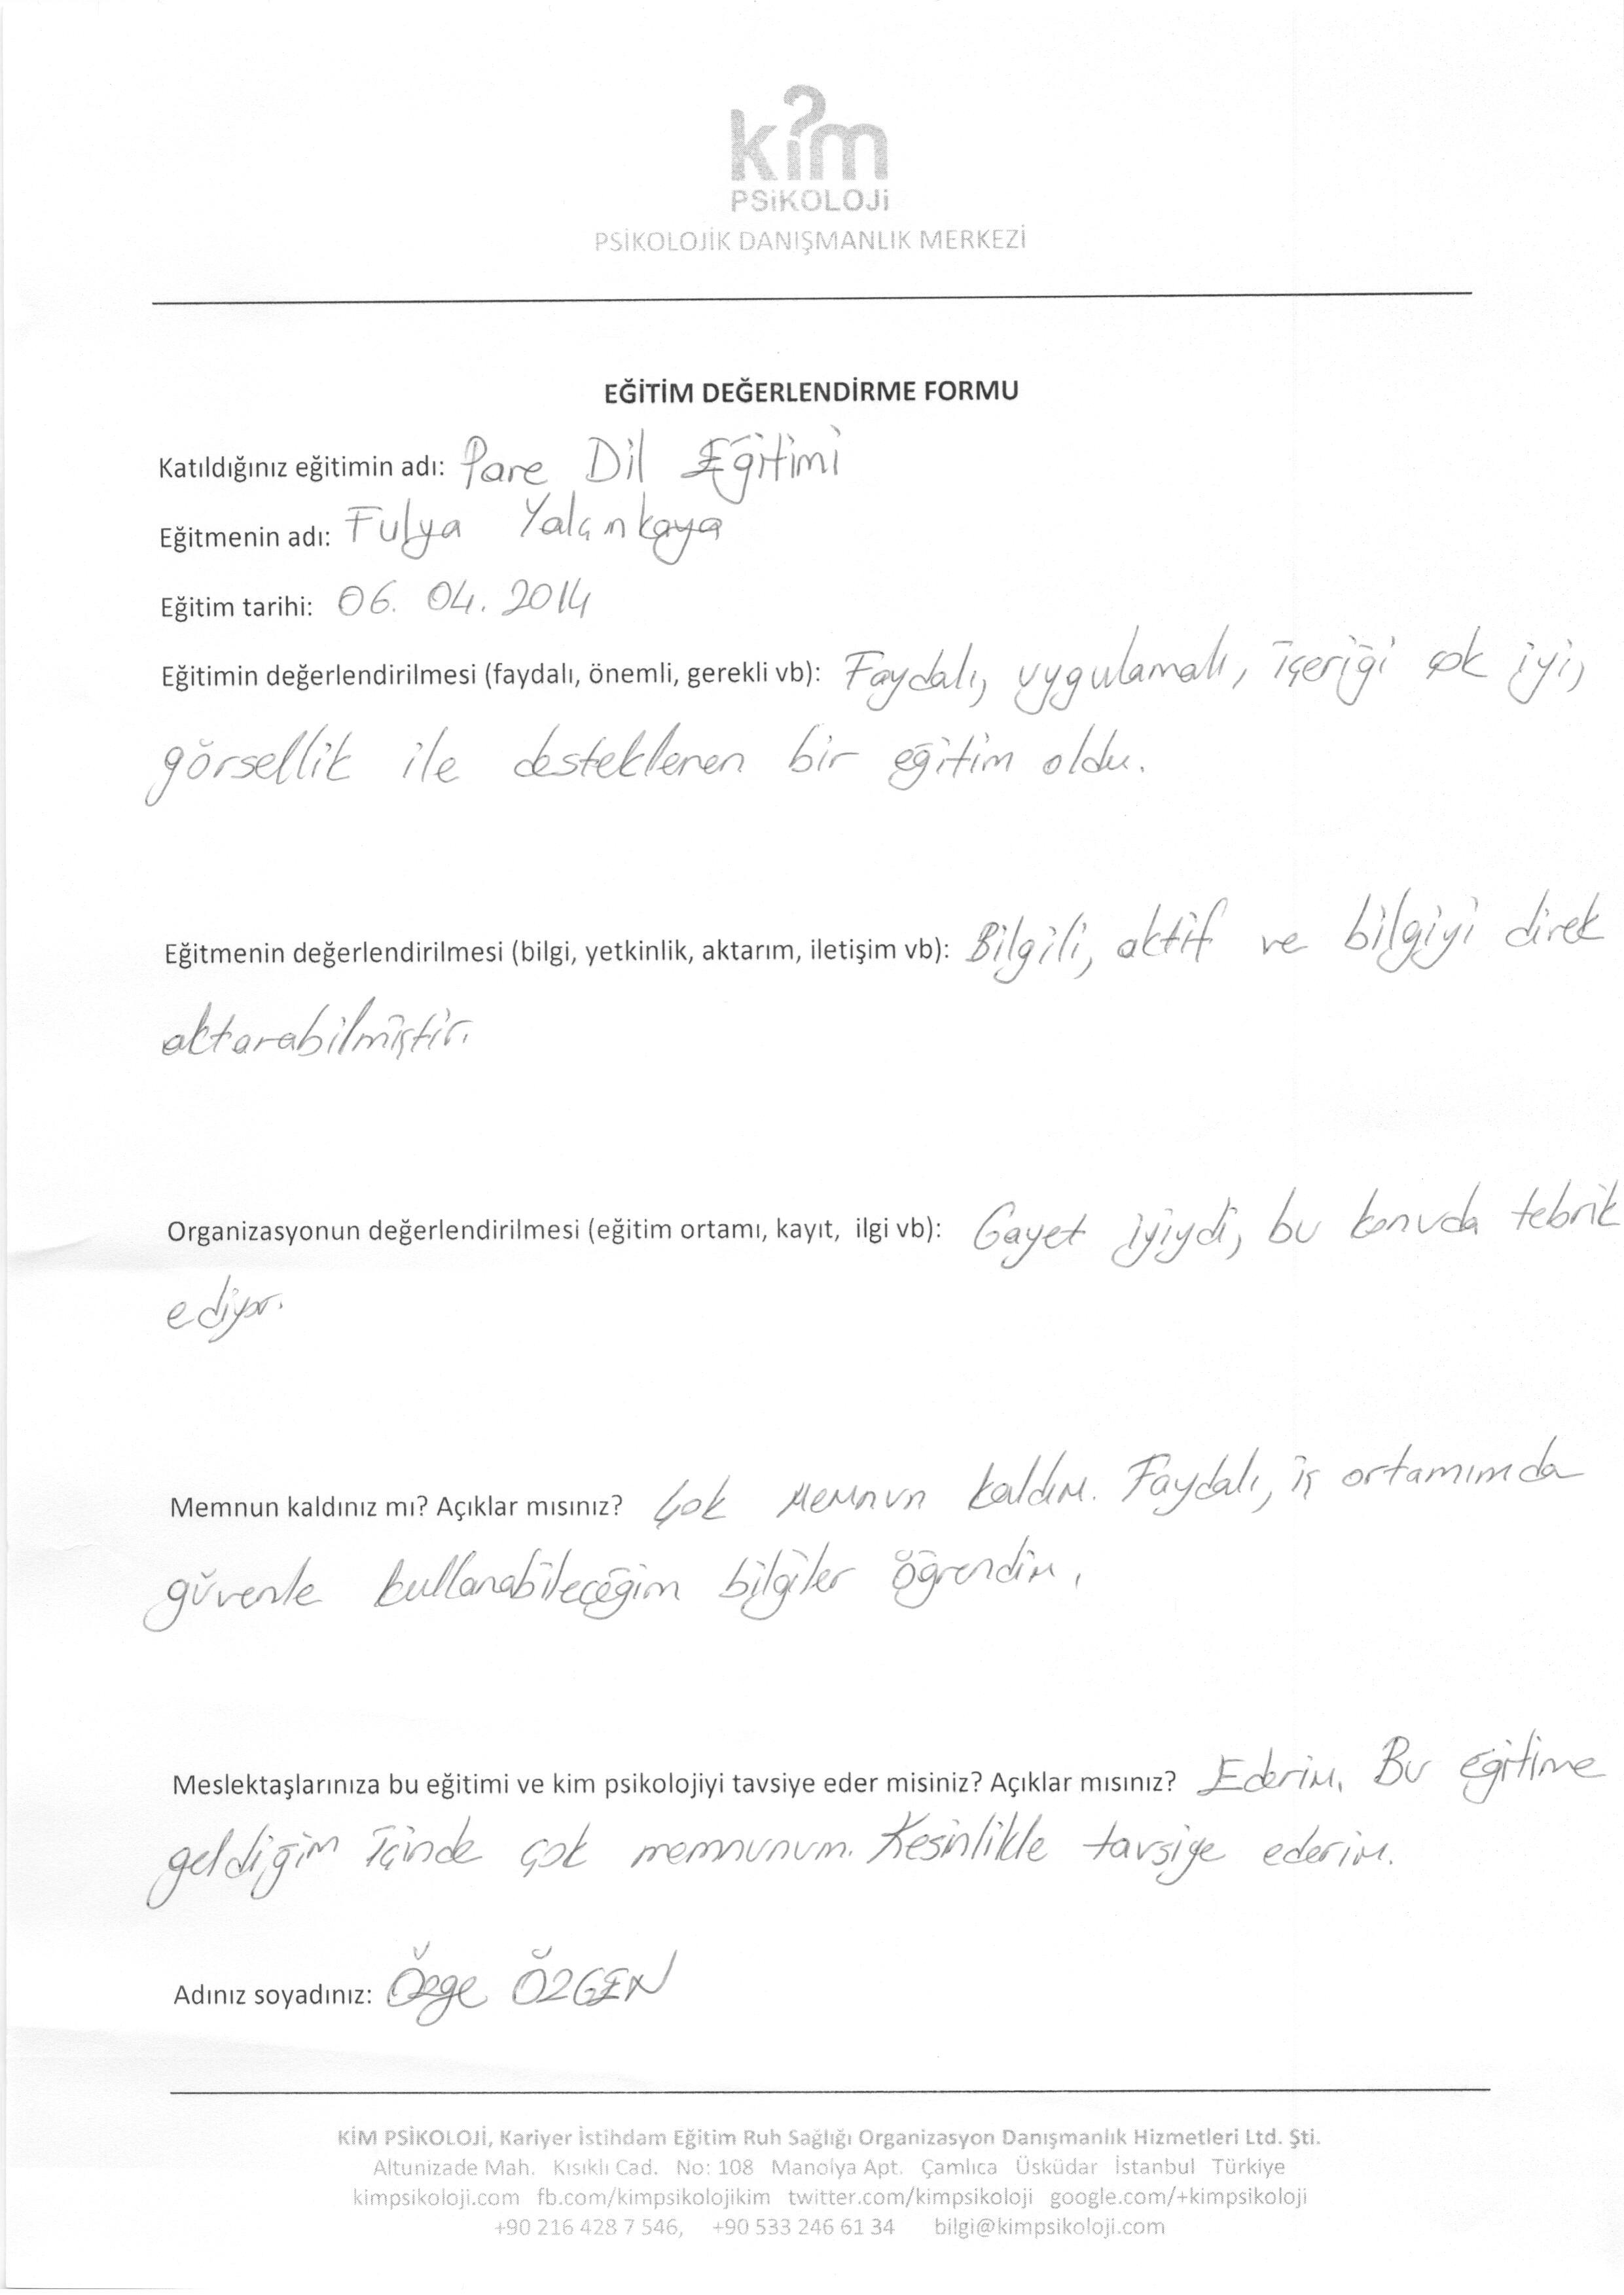 kim
PSiKOLOJi
PSİKOLOJİK DANIŞMANLIK MERKEZİ
EĞİTİM DEĞERLENDİRME FORMU
Katıldığınız eğitimin adı: Pare Dil Eğitimi
Eğitmenin adı: Fulya Yalçınkaya
Eğitim tarihi: 06. 04. 2014
Eğitimin değerlendirilmesi (faydalı, önemli, gerekli vb): Faydalı, uygulamalı, içeriği çok iyi,
görsellik ile desteklenen bir eğitim oldu.
Eğitmenin değerlendirilmesi (bilgi, yetkinlik, aktarım, iletişim vb): Bilgili, aktif ve bilgiyi direk
aktarabilmiştir.
Organizasyonun değerlendirilmesi (eğitim ortamı, kayıt, ilgi vb): Gayet iyiydi, bu konuda tebrik
ediyor.
Memnun kaldınız mı? Açıklar mısınız? Çok memnun kaldım. Faydalı, iş ortamımda
güvenle kullanabileceğim bilgiler öğrendim.
Meslektaşlarınıza bu eğitimi ve kim psikolojiyi tavsiye eder misiniz? Açıklar mısınız? Ederim. Bu eğitime
geldiğim içinde çok memnunum. Kesinlikle tavsiye ederim.
Adınız soyadınız: Özge ÖZGEN
KİM PSİKOLOJİ, Kariyer İstihdam Eğitim Ruh Sağlığı Organizasyon Danışmanlık Hizmetleri Ltd. Şti.
Altunizade Mah. Kısıklı Cad. No: 108 Manolya Apt. Çamlıca Üsküdar İstanbul Türkiye
kimpsikoloji.com fb.com/kimpsikolojikim twitter.com/kimpsikoloji google.com/+kimpsikoloji
+90 216 428 7 546, +90 533 246 61 34 bilgi@kimpsikoloji.com